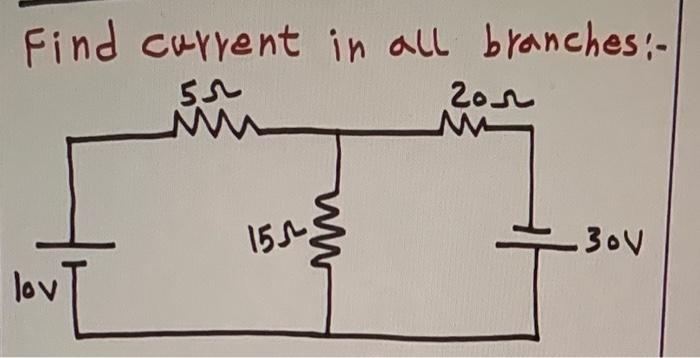 Find current in all branches:-
5Ω 20Ω
15Ω 30V
10V